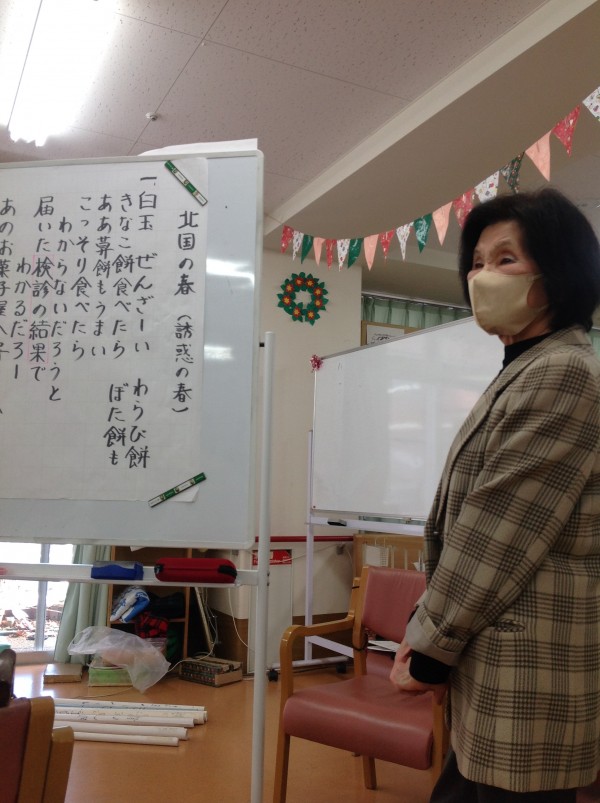 北国の春(誘惑の春)
一白玉 ぜんざーい わらび餅
きなこ餅食べたら ぼた餅も
ああ草餅もうまい
こっそり食べたら
わからないだろうと
届いた検診の結果で
わかるだろー
あのお菓子屋へ